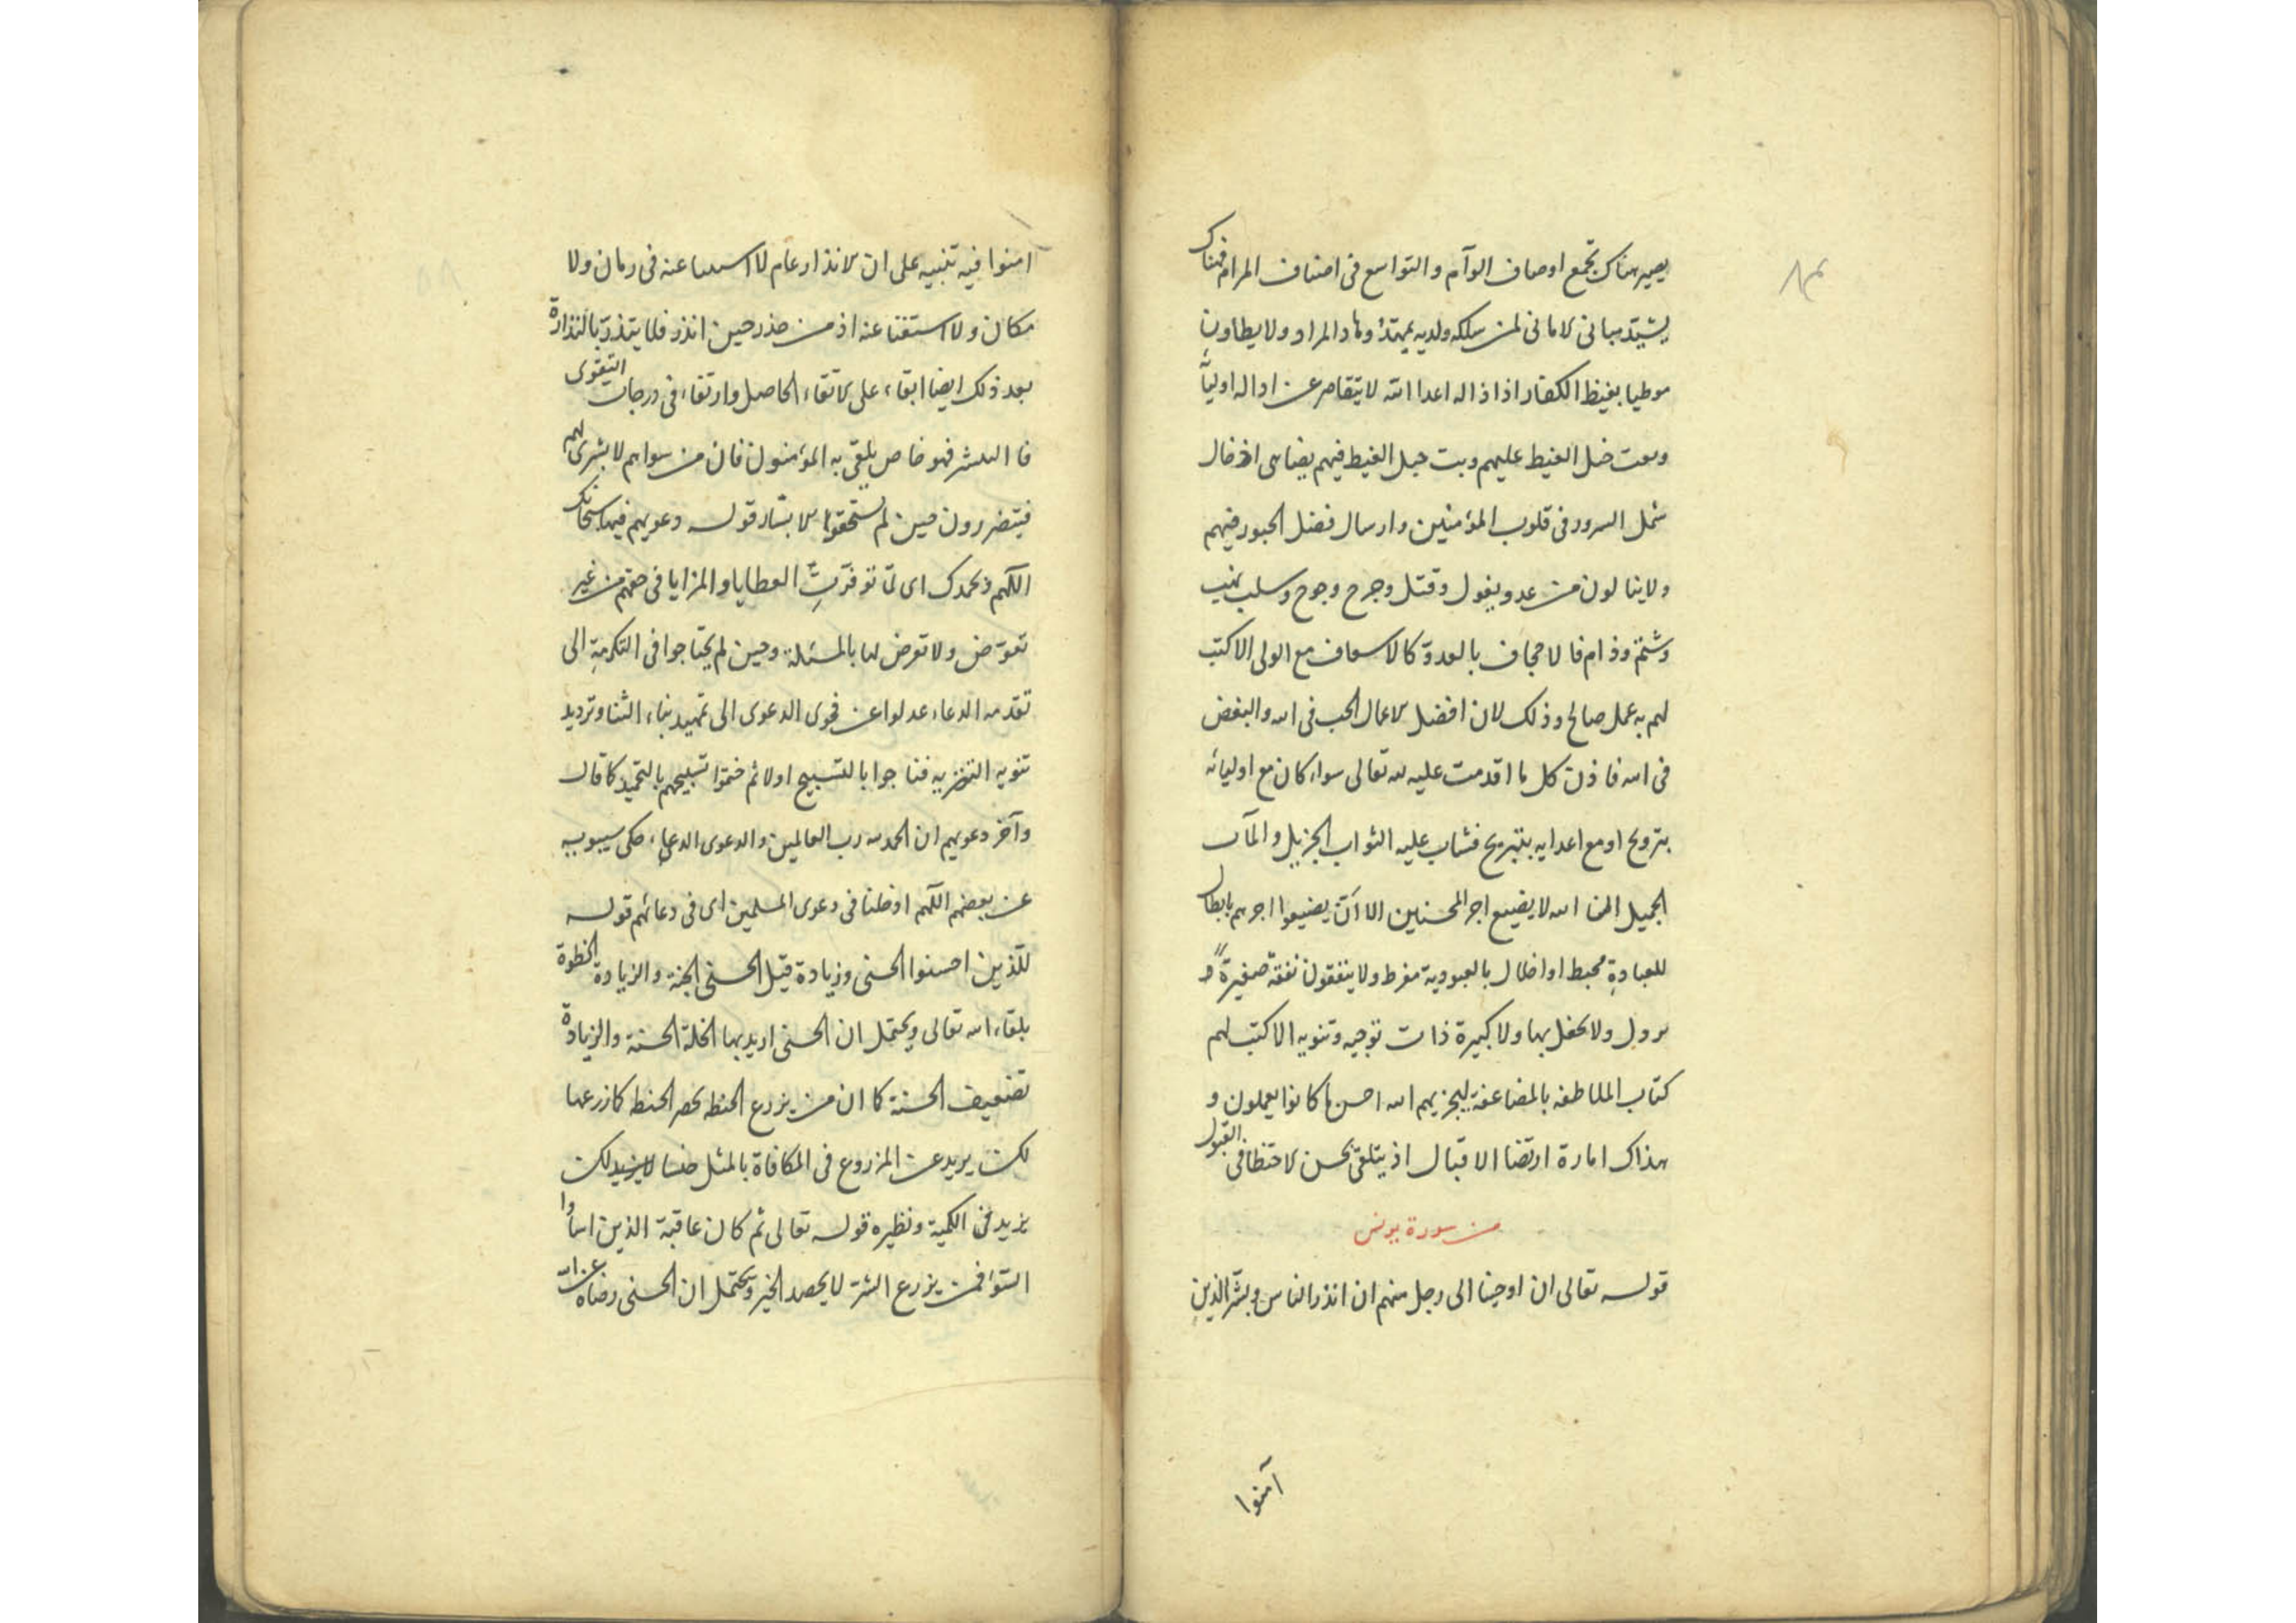 يصير هناك تجمع اوصاف الوآم والتواسع فى اصناف المرام فهناك
يشيد مبانى الامانى لمن سلكه ولديه يمهد وهاد المراد ولا يطاون
موطيا بغيظ الكفار اذ اذاله اعدا الله لا يتقاصر عن اداله اوليآئه
الغيط عليهم وبت حبل الغيط فيهم يضاهى ادخال
شمل السرور فى قلوب المؤمنين وارسال فضل الحبور فيهم
ولاينالون من عدو بغول وقتل وجرح وسلب نهب
وشتم وذام فالاحجاف بالعدو كالاسعاف مع الولى الا كتب
لهم به عمل صالح وذلك لان افضل الاعمال الحب فى الله والبغض
فى الله فاذن كل ما اقدمت عليه لله تعالى سواء كان مع اوليائه
بترويح او مع اعدايه بتبريح فيثاب عليه الثواب الجزيل والمآب
الجميل ان الله لا يضيع اجر المحسنين الا ان يضيعوا اجرهم بابطال
للعبادة محبط او اخلال بالعبودية مفرط ولا ينفقون نفقة صغيرة
ولا يحفل بها ولا كبيرة ذات توجيه وتنويه الا كتب لهم
كتاب الملاطفه بالمضاعفة ليجزيهم الله احسن ما كانوا يعملون و
هذاك امارة ارتضا الاقبال اذ يتلقى بحسن الاحتظا فى القبول
من سورة يونس
قوله تعالى ان اوحينا الى رجل منهم ان انذر الناس وبشر الذين
آمنوا
امنوا فيه تنبيه على ان الانذار عام لا عنه فى زمان ولا
مكان ولا استغنا عنه اذ من حذر حين انذر فلا يتذر بالنذارة
بعد ذلك ايضا ابقاء على الاتقاء الحاصل وارتقاء فى درجات التقوى
فا التبشر فهو خاص يلقى به المؤمنون فان من سواهم لا بشرى لهم
فيتضررون حين لم يستحقوا الابشار قوله دعويهم فيها سبحانك
اللهم وبحمدك اى لما توفرت العطايا والمزايا فى حقهم من غير
تعوض ولا تعرض لها بالمسئلة وحين لم يحتاجوا فى التكرمة الى
تقدمه الدعاء عدلوا عن فحوى الدعوى الى تمهيد بناء الثنا وترديد
تنويه التنزيه فناجوا بالتسبيح اولا ثم ختموا تسبيحهم بالتحميد كما قال
وآخر دعويهم ان الحمد لله رب العالمين والدعوى الدعاء حكى سيبويه
عن بعضهم اللهم ادخلنا فى دعوى المسلمين اى فى دعائهم قوله
للذين احسنوا الحسنى وزيادة قيل الحسنى الجنة والزيادة الحظوة
بلقاء الله تعالى ويحتمل ان الحسنى اريد بها الخلة الحسنة والزيادة
تضعيف الحسنة كما ان من يزرع الحنطه يحصد الحنطه كما زرعها
لكن يزيد عن المزروع فى المكافاة بالمثل جنسا لا يزيد لكن
يزيد فى الكمية ونظيره قوله تعالى ثم كان عاقبة الذين اساؤا
السوآ فمن يزرع الشر لا يحصد الخير ويحتمل ان الحسنى رضاه